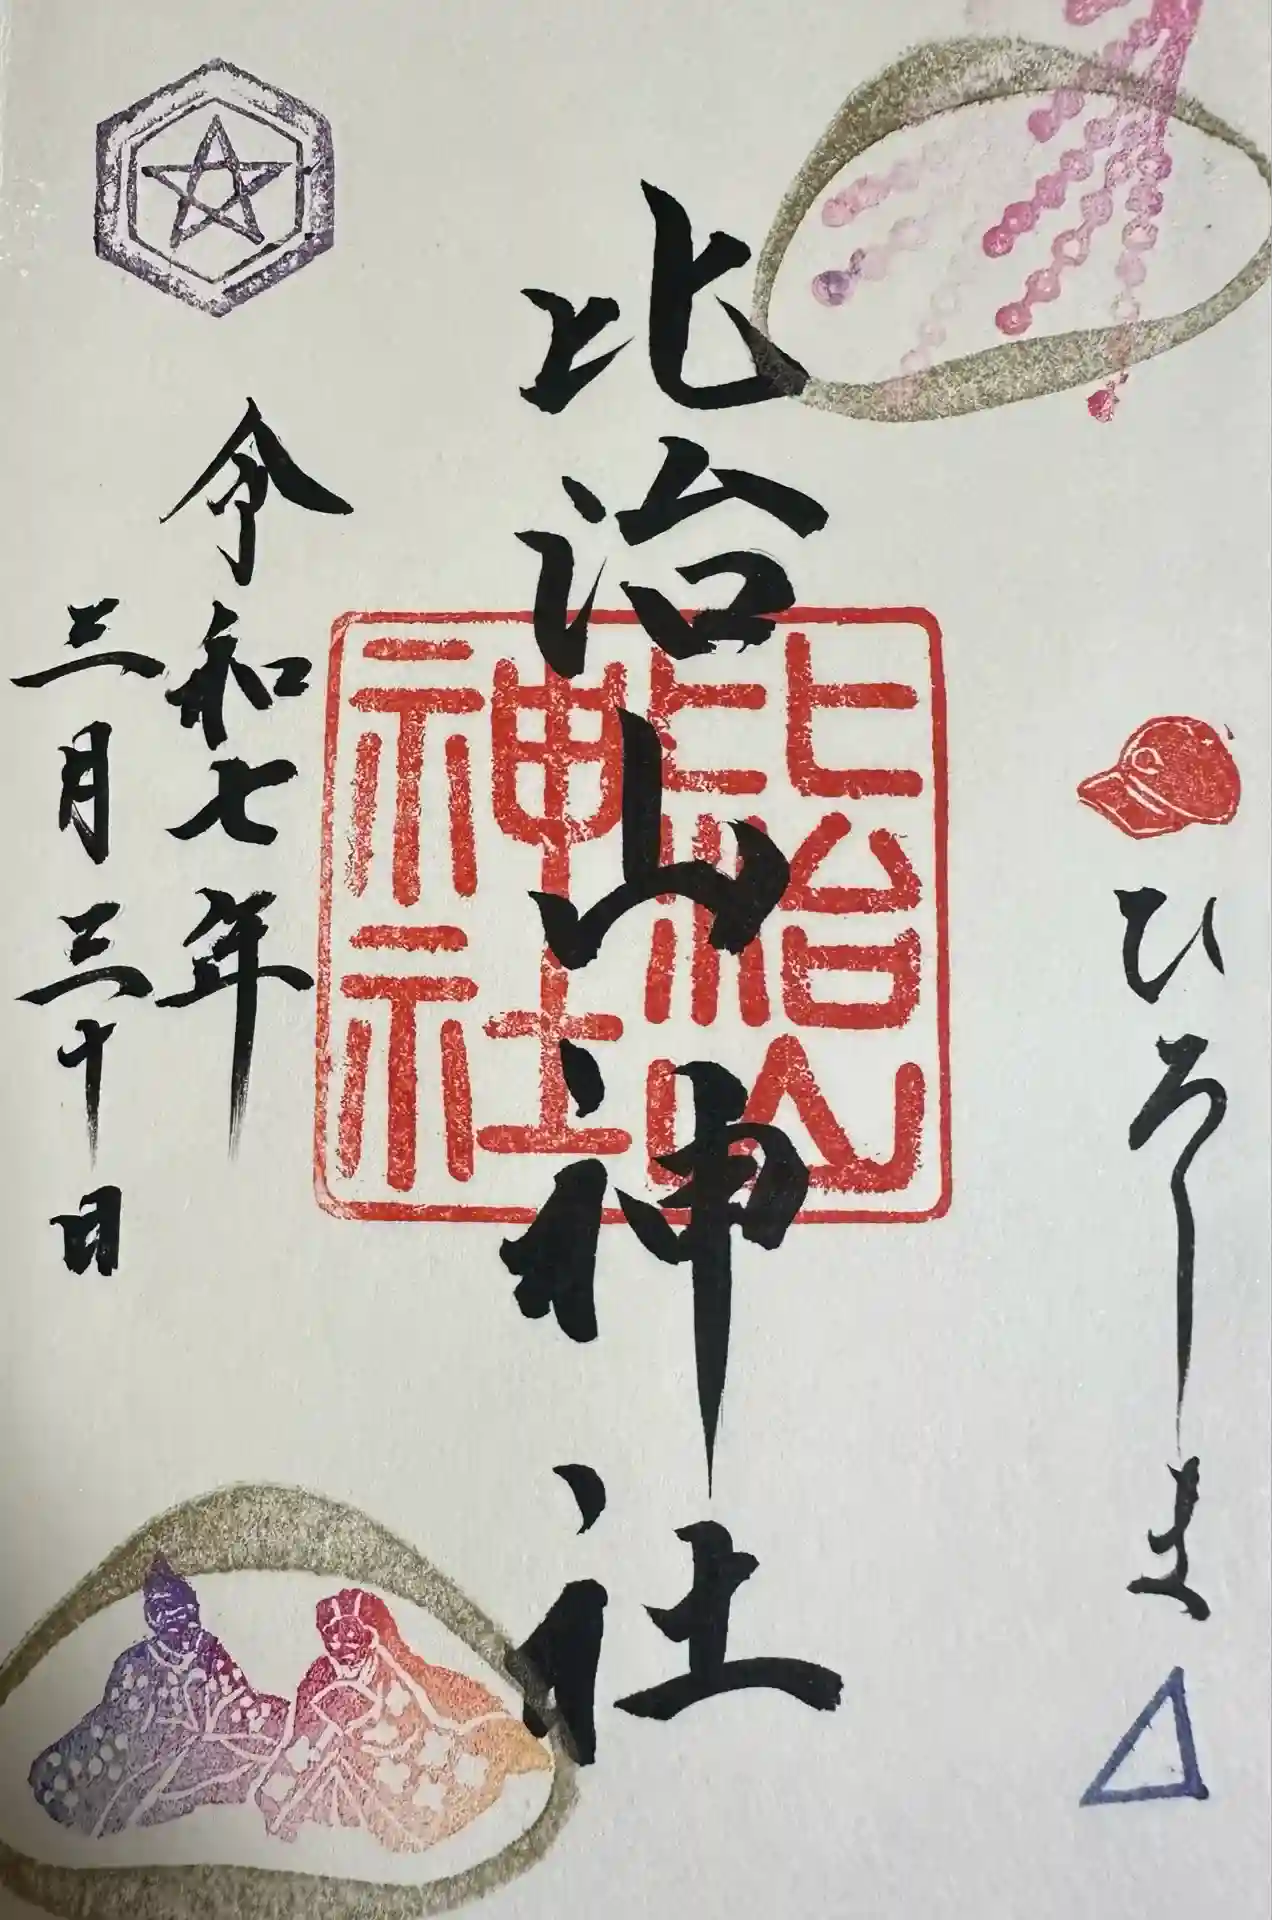 ひろしま
比治山神社
比治山神社
令和七年
三月三十日